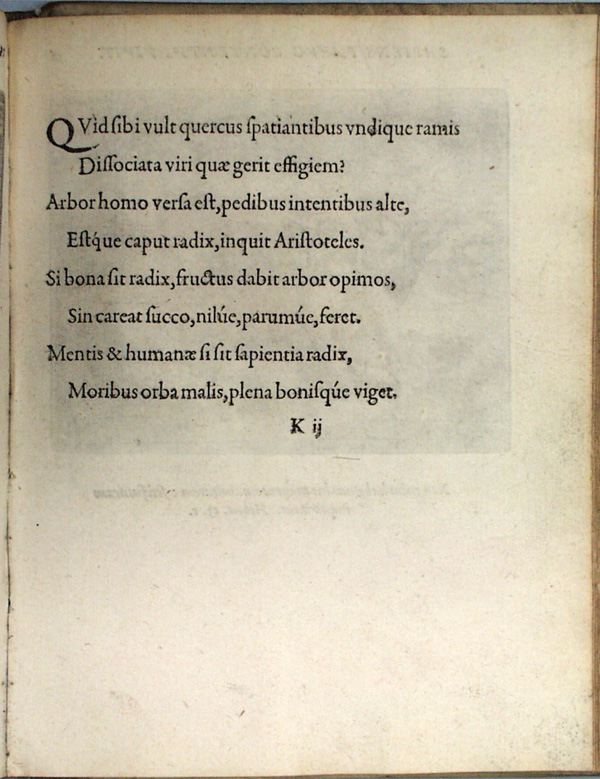 QVid sibi vult quercus spatiantibus vndique ramis
Dissociata viri quæ gerit effigiem?
Arbor homo versa est, pedibus intentibus alte,
Estq́ue caput radix, inquit Aristoteles.
Si bona sit radix, fructus dabit arbor opimos,
Sin careat succo, nilúe, parumúe, feret.
Mentis & humanæ si sit sapientia radix,
Moribus orba malis, plena bonisq́ue viget.
K ij